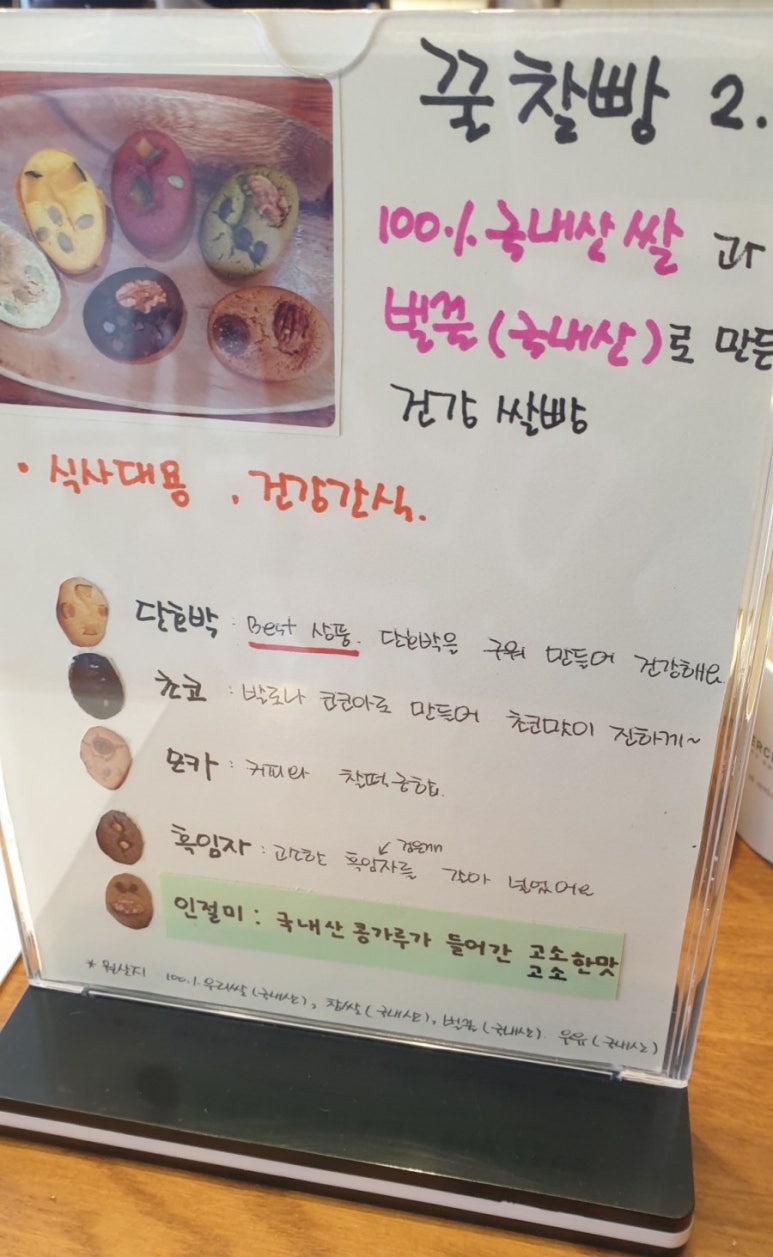 꿀찰빵 2.
100% 국내산 쌀 과
벌꿀(국내산)로 만든
건강 쌀빵
· 식사대용 . 건강간식.
단호박 : Best 상품. 단호박을 구워 만들어 건강해요
초코 : 발로나 코코아로 만들어 초코맛이 진하게~
모카 : 커피와 찰떡궁합.
검은깨
흑임자 : 고소한 흑임자를 갈아 넣었어요
인절미 : 국내산 콩가루가 들어간 고소한맛
고소
* 원산지 100% 우리쌀(국내산), 찹쌀(국내산), 벌꿀(국내산) 우유(국내산)